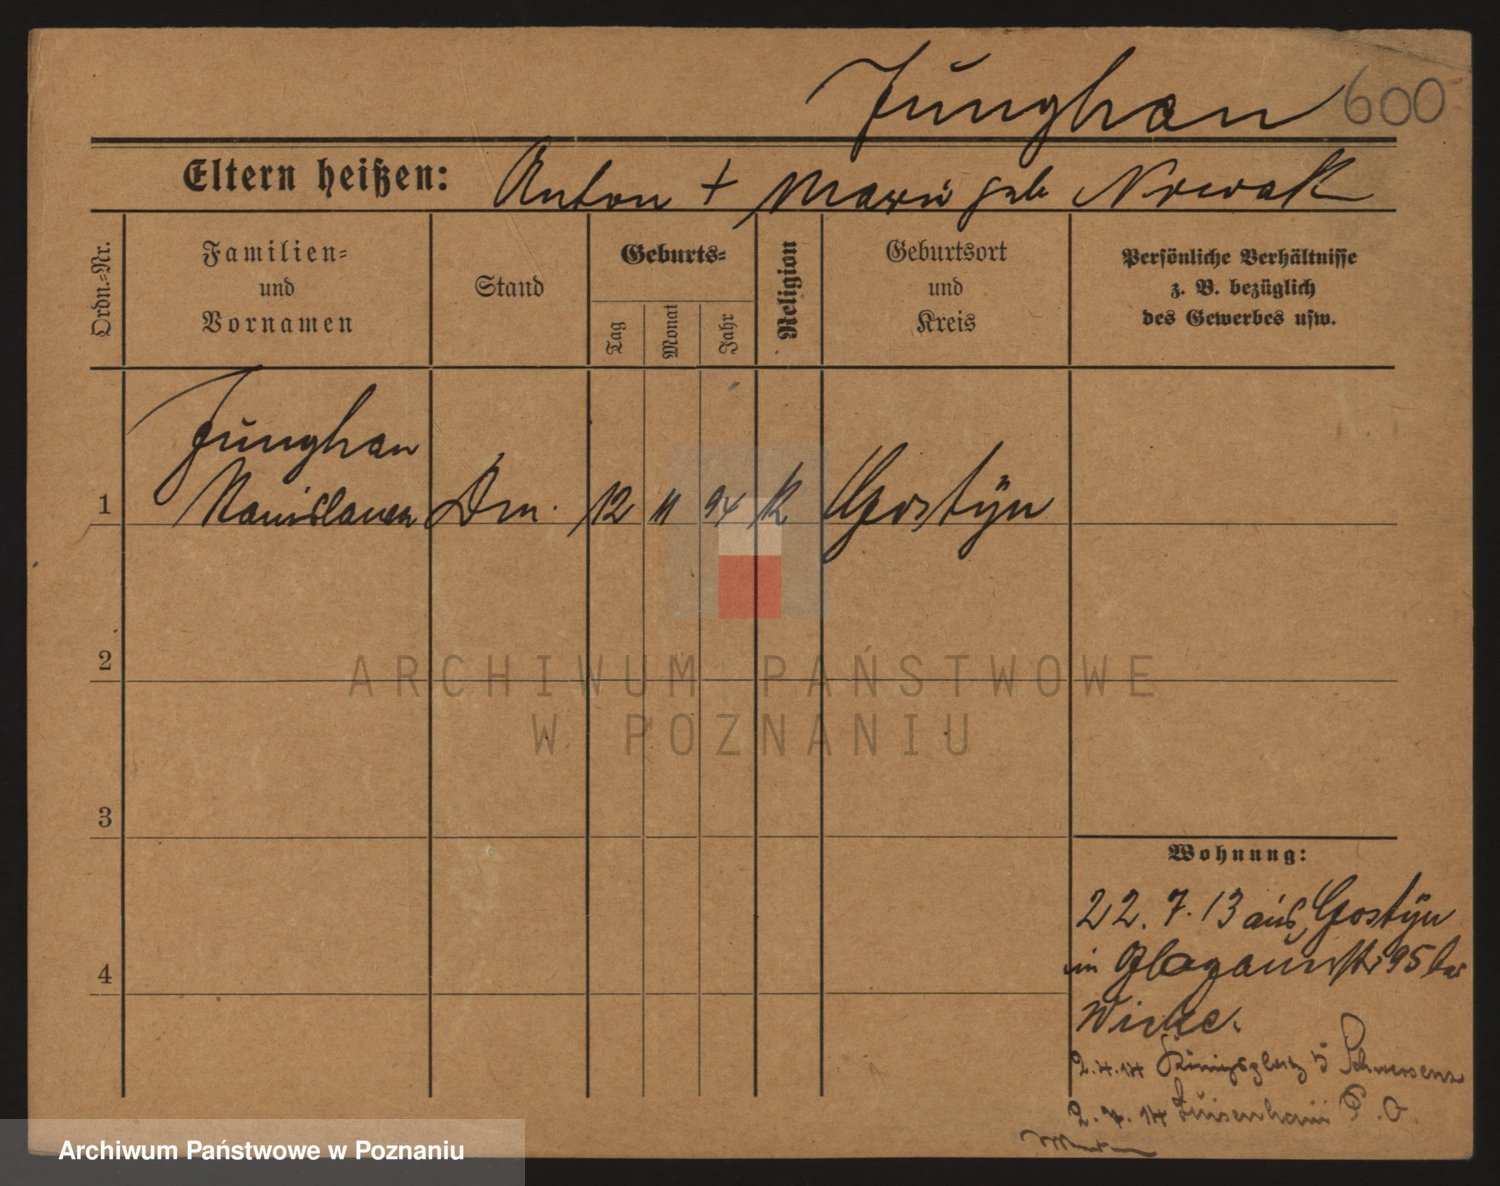 Junghan 600
Eltern heißen: Anton + Marie geb Nowak
Ordn.=Nr.
Familien=
und
Vornamen
Stand
Geburts=
Tag
Monat
Jahr
Religion
Geburtsort
und
Kreis
Persönliche Verhältnisse
z. B. bezüglich
des Gewerbes usw.
Junghan
1 Stanislawa Dm. 12 11 94 K Gostÿn
2
ARCHIWUM PAŃSTWOWE
W POZNANIU
3
Wohnung:
22. 7. 13 aus Gostÿn
in Glogauerstr 95 bei
4
2.4.14 Königsplatz 5 Schwersenz
2.7.14 Luisenhain P. O.
Archiwum Państwowe w Poznaniu